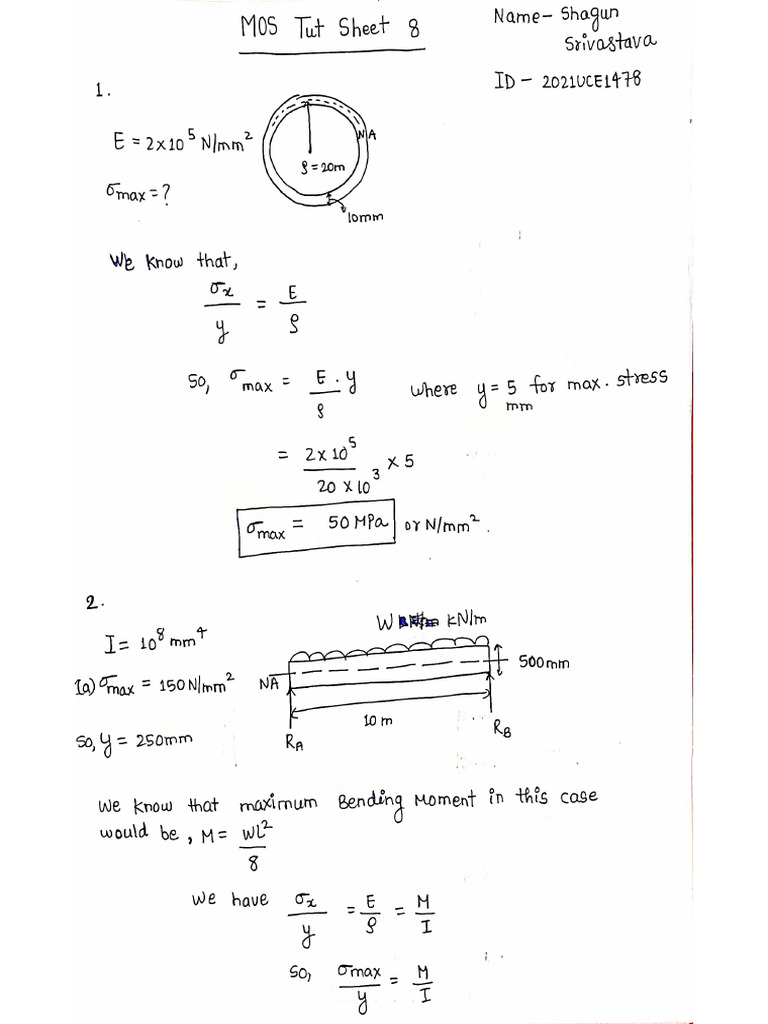 MOS Tut Sheet 8
Name - Shagun
Srivastava
ID - 2021UCE1478
1.
E = 2×10^5 N/mm^2
σmax = ?
NA
ρ = 20m
10mm
We know that,
σx/y = E/ρ
So, σmax = E.y/ρ where y = 5 mm for max. stress
= 2×10^5/20×10^3 × 5
σmax = 50 MPa or N/mm^2.
2.
I = 10^8 mm^4
W kN/m
Ia) σmax = 150 N/mm^2
NA
500mm
So, y = 250mm
10 m
RA
RB
We know that maximum Bending Moment in this case
would be, M = WL^2/8
We have σx/y = E/ρ = M/I
So, σmax/y = M/I